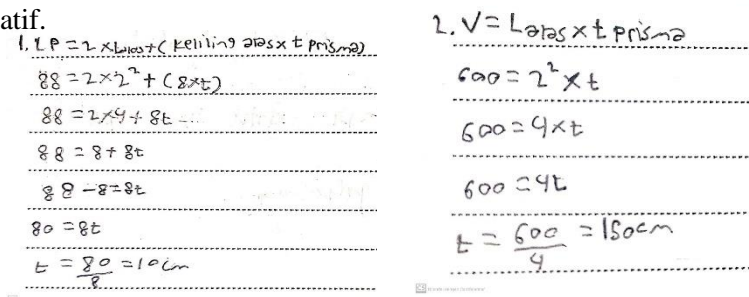 atif.
1. LP = 2 × Lalas + ( keliling alas x t prisma)
88 = 2×2² + (8×t)
88 = 2×4 + 8t
88 = 8 + 8t
88 - 8 = 8t
80 = 8t
t = 80/8 = 10 cm
2. V = Lalas x t prisma
600 = 2² x t
600 = 4×t
600 = 4t
t = 600/4 = 150cm